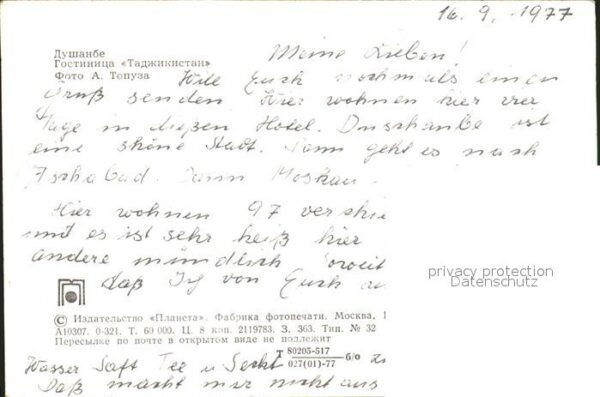 16. 9. 1977
Душанбе
Гостиница «Таджикистан»
Фото А. Топуза
Meine Lieben!
Will Euch nochmals einen
Gruß senden. Hier wohnen hier vier
Tage in dießen Hotel. Duschanbe ist
eine shöne Stadt. Dann geht es nach
Aschabad. Dann Moskau.
Hier wohnen 97 verschie
und es ist sehr heiß hier
andere mündlich soweit
Daß Ich von Euch
privacy protection
Datenschutz
© Издательство «Планета». Фабрика фотопечати. Москва, 1
А10307. 0-321. Т. 60 000. Ц. 8 коп. 2119783. З. 363. Тип. № 32
Пересылке по почте в открытом виде не подлежит
Т 80205-517 / 027(01)-77 б/о
Wasser Saft Tee u Seckt
Daß macht mir nicht aus